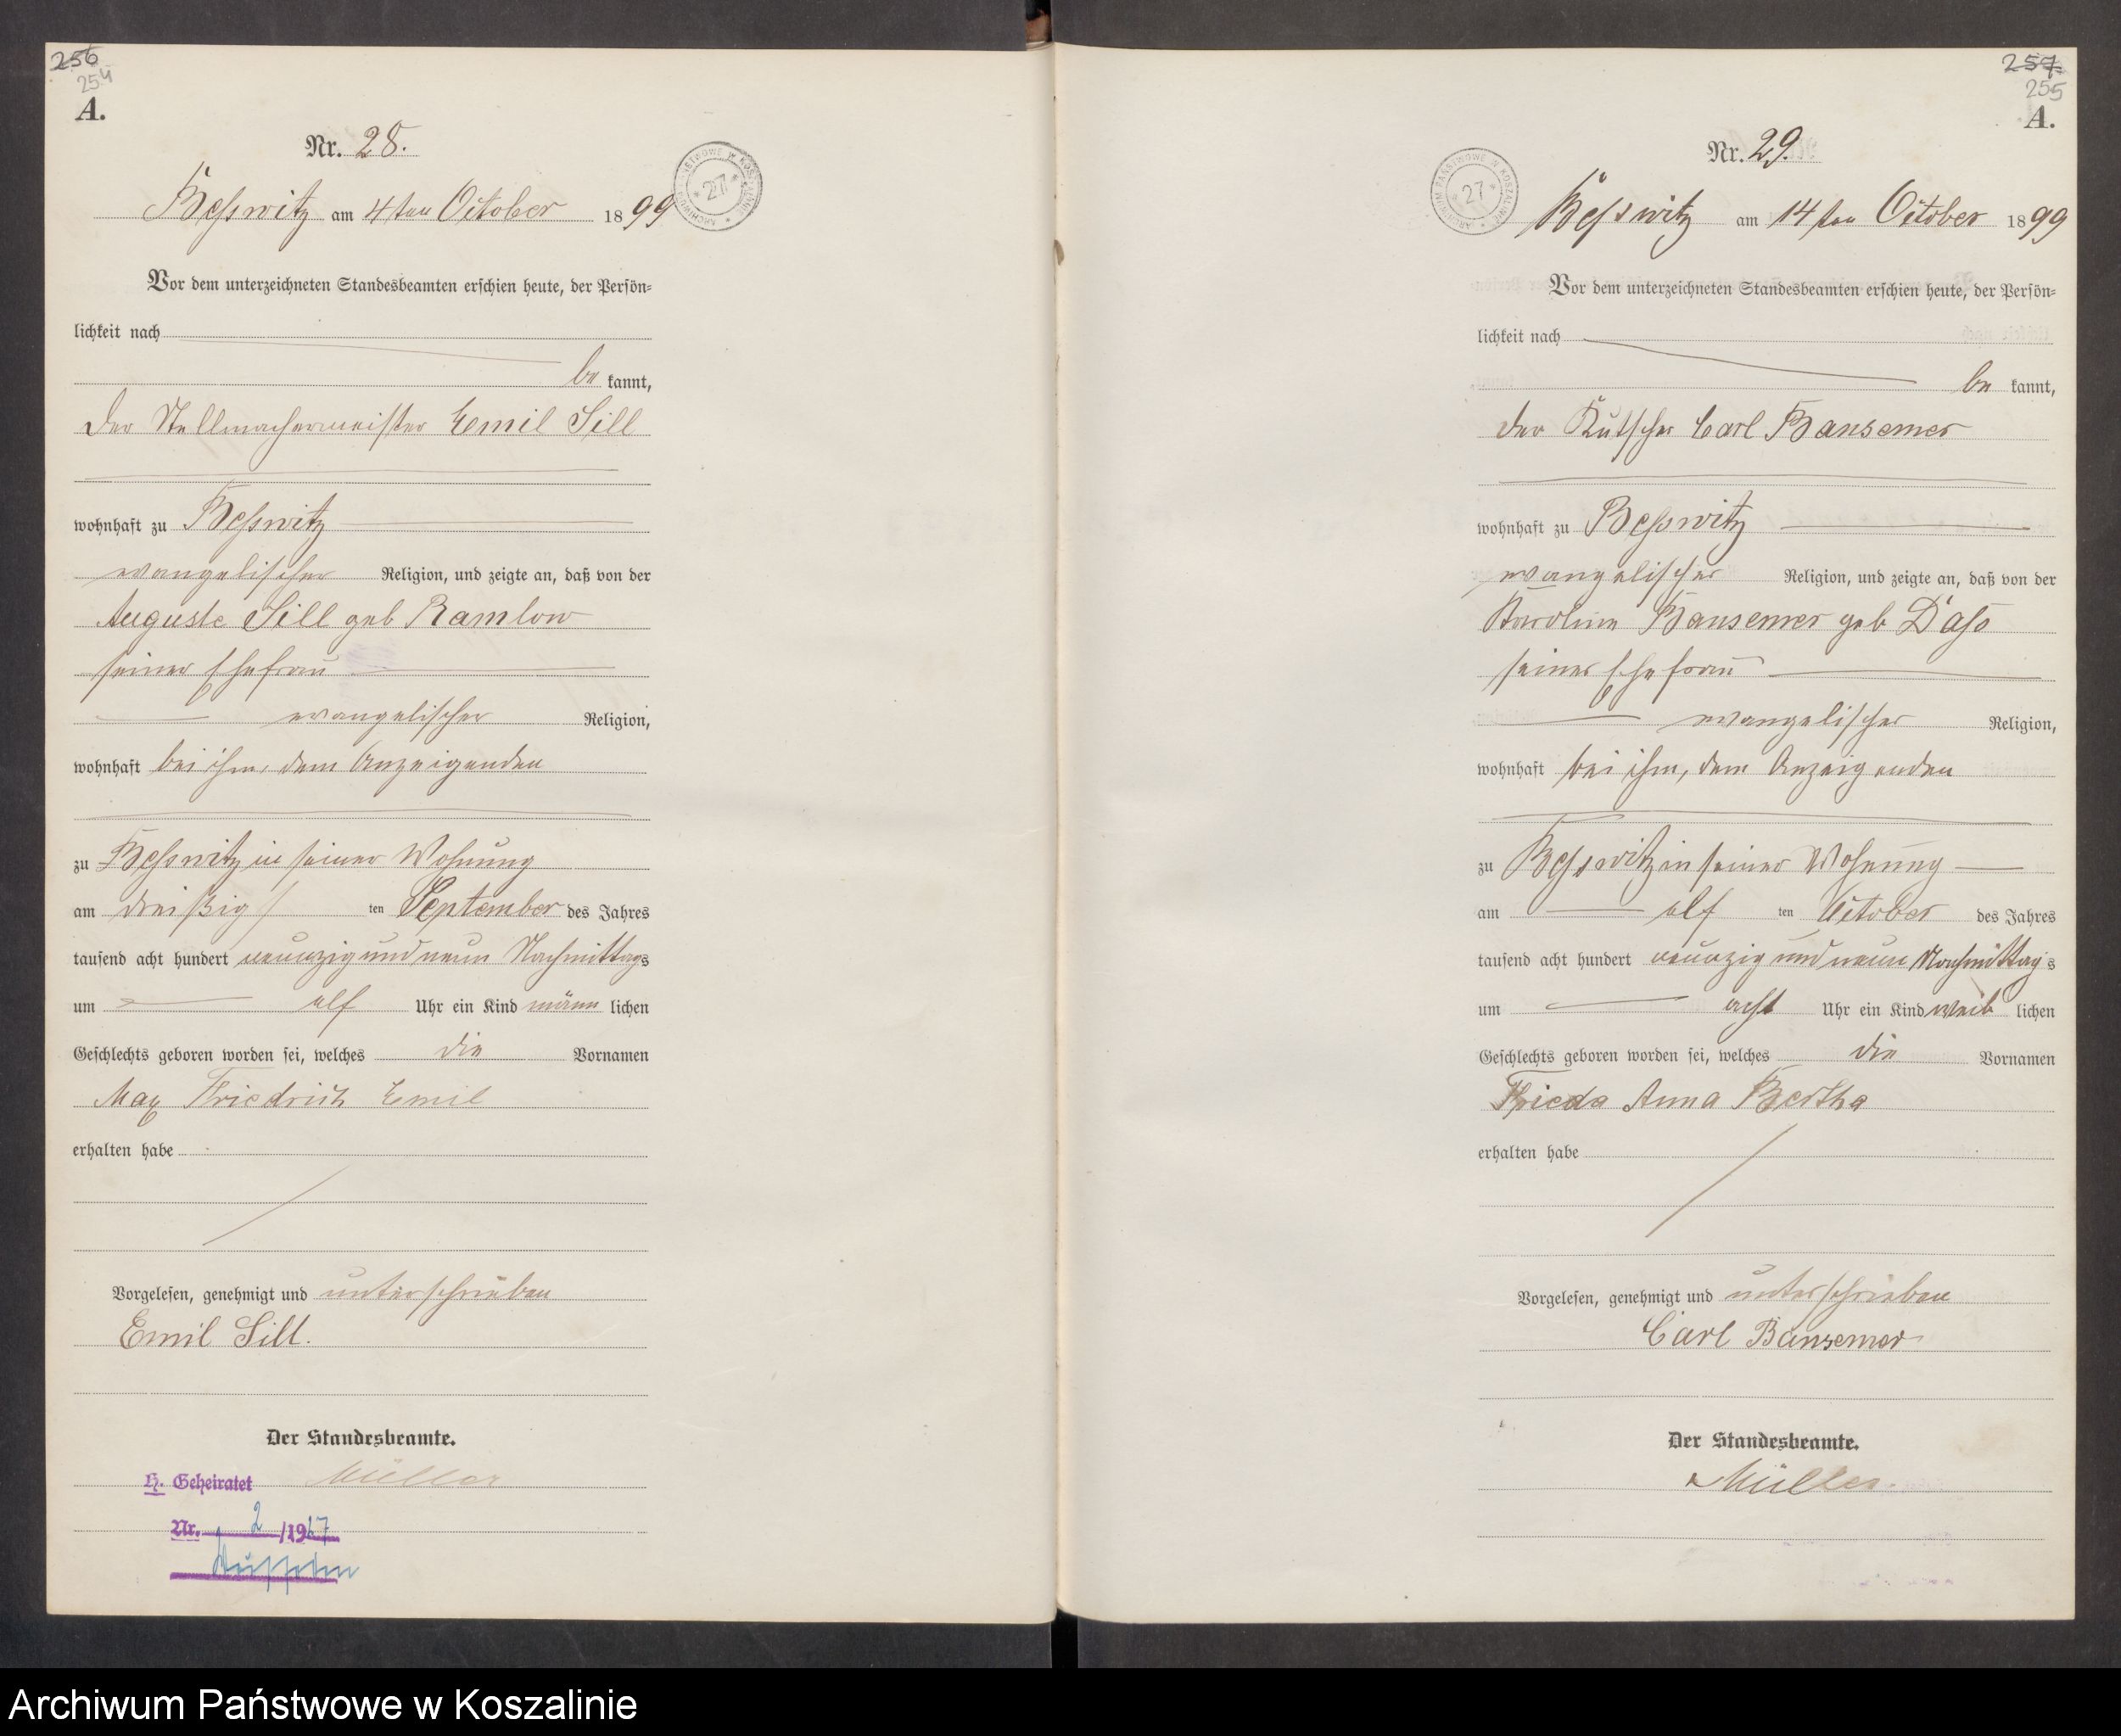 256
254
A.
Nr. 28.
Besswitz am 4ten October 1899
ARCHIWUM PAŃSTWOWE W KOSZALINIE * 27 *
Vor dem unterzeichneten Standesbeamten erschien heute, der Persön=
lichkeit nach
be kannt,
der Stellmachermeister Emil Sill
wohnhaft zu Besswitz
evangelischer Religion, und zeigte an, daß von der
Auguste Sill geb Ramlow
seiner Ehefrau
evangelischer Religion,
wohnhaft bei ihm, dem Anzeigenden
zu Besswitz in seiner Wohnung
am dreißig ten September des Jahres
tausend acht hundert neunzig und neun Nachmittags
um elf Uhr ein Kind männ lichen
Geschlechts geboren worden sei, welches die Vornamen
Max Friedrich Emil
erhalten habe
Vorgelesen, genehmigt und unterschrieben
Emil Sill.
Der Standesbeamte.
Müller
H. Geheiratet
Nr. 2 /1927
257
255
A.
Nr. 29.
ARCHIWUM PAŃSTWOWE W KOSZALINIE * 27 *
Besswitz am 14ten October 1899
Vor dem unterzeichneten Standesbeamten erschien heute, der Persön=
lichkeit nach
be kannt,
der Kutscher Carl Bansemer
wohnhaft zu Besswitz
evangelischer Religion, und zeigte an, daß von der
Karoline Bansemer geb
seiner Ehefrau
evangelischer Religion,
wohnhaft bei ihm, dem Anzeigenden
zu Besswitz in seiner Wohnung
am elf ten October des Jahres
tausend acht hundert neunzig und neun Nachmittags
um acht Uhr ein Kind weib lichen
Geschlechts geboren worden sei, welches die Vornamen
Frieda Anna Bertha
erhalten habe
Vorgelesen, genehmigt und unterschrieben
Carl Bansemer
Der Standesbeamte.
Müller.
Archiwum Państwowe w Koszalinie